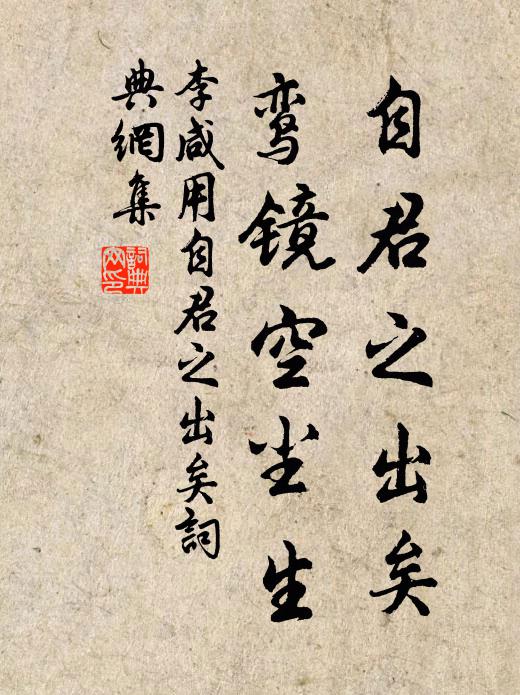 自君之出矣
鸾镜空尘生
李咸用自君之出矣詞
典網集
詞典